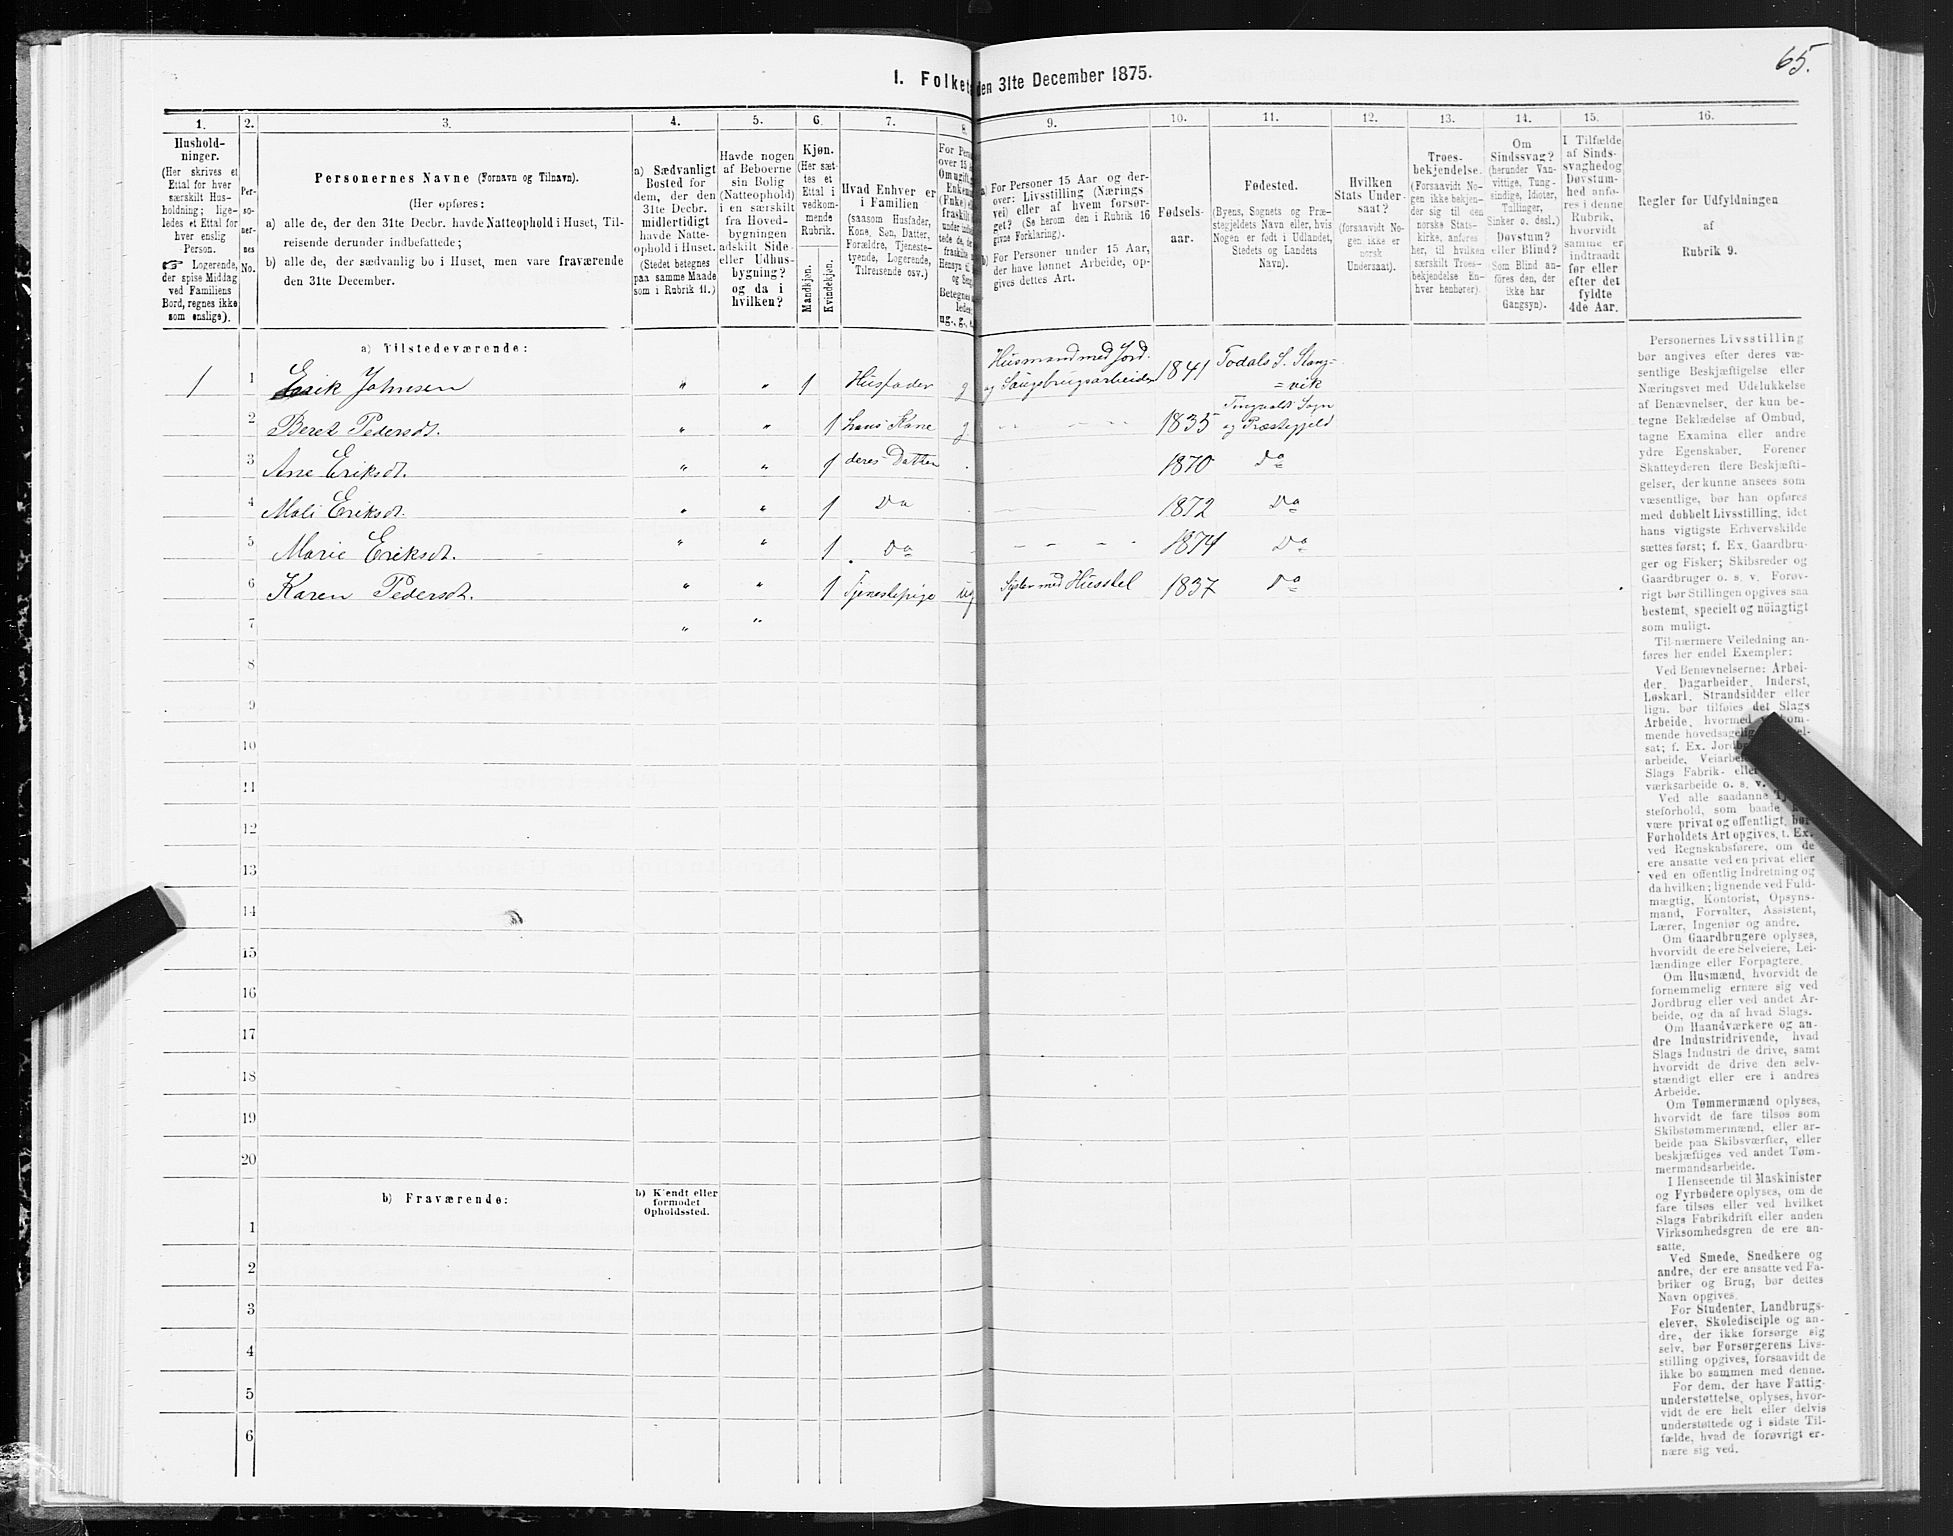 65.
I. Folket
den 31te December 1875.
1.
2.
3.
4.
5.
6.
7.
8.
9.
10.
11.
12.
13.
14.
15.
16.
Hushold-
ninger.
(Her skrives et
Ettal for hver
særskilt Hus-
holdning; lige-
ledes et Ettal for
hver enslig
Person.
☞ Logerende,
der spise Middag
ved Familiens
Bord, regnes ikke
som enslige).
Per-
so-
ner-
nes
No.
Personernes Navne (Fornavn og Tilnavn).
(Her opføres:
a) alle de, der den 31te Decbr. havde Natteophold i Huset, Til-
reisende derunder indbefattede;
b) alle de, der sædvanlig bo i Huset, men vare fraværende
den 31te December.
a) Sædvanligt
Bosted for
dem, der den
31te Decbr.
midlertidigt
havde Natte-
ophold i Huset.
(Stedet betegnes
paa samme Maade
som i Rubrik 11.)
Havde nogen
af Beboerne
sin Bolig
(Natteophold)
i en særskilt
fra Hoved-
bygningen
adskilt Side-
eller Udhus-
bygning?
og da i
hvilken?
Kjøn.
(Her sæt-
tes et
Ettal i
vedkom-
mende
Rubrik.
Mandkjøn.
Kvindekjøn.
Hvad Enhver er
i Familien
(saasom Husfader,
Kone, Søn, Datter,
Forældre, Tjeneste-
tyende, Logerende,
Tilreisende osv.)
For Pers
over 15
Om ugift,
Enkem
(Enke) e
fraskilt
under ind
tede de,
fraskilte
Hensyn t.
og Seng.
Betegnes
ledes:
ug., g., e.
a) For Personer 15 Aar og der-
over: Livsstilling (Nærings
vei) eller af hvem forsør-
get? (Se herom den i Rubrik 16
givne Forklaring).
b) For Personer under 15 Aar,
der have lønnet Arbeide, op-
gives dettes Art.
Fødsels-
aar.
Fødested.
(Byens, Sognets og Præ-
stegjeldets Navn eller, hvis
Nogen er født i Udlandet,
Stedets og Landets
Navn).
Hvilken
Stats Under-
saat?
(forsaavidt No-
gen ikke er
norsk
Undersaat).
Troes-
bekjendelse.
(Forsaavidt No-
gen ikke bekjen-
der sig til den
norske Stats-
kirke, anføres
her, til hvilken
særskilt Troes-
bekjendelse En-
hver henhører).
Om
Sindssvag?
(herunder Van-
vittige, Tung-
sindige, Idioter,
Tullinger,
Sinker o. desl.)
Døvstum?
eller Blind?
(Som Blind an-
føres den, der
ikke har
Gangsyn).
I Tilfælde
af Sinds-
svaghedog
Døvstum-
hed anfø-
res i denne
Rubrik,
hvorvidt
samme er
indtraadt
før eller
efter det
fyldte
4de Aar.
Regler for Udfyldningen
af
Rubrik 9.
a) Tilstedeværende:
1 1 Erik Johnsen " " 1 Husfader g Husmand med Jord. og Saugbrugsarbeider 1841 Todals S. Stang=
=vik
2 Beret Pedersdt. " " 1 hans Kone g. 1835 Tingvold Sogn
og Præstegjeld
3 Ane Eriksdt. " " 1 deres Datter 1870 Do
4 Mali Eriksdt. " " 1 Do 1872 Do
5 Marie Eriksdt. " " 1 Do 1874 Do
6 Karen Pedersdt. " " 1 Tjenestepige ug Syster med Husstel 1837 Do
7 " "
8
9
10
11
12
13
14
15
16
17
18
19
20
b) Fraværende:
b) Kjendt eller
formodet
Opholdssted.
1
2
3
4
5
6
Personernes Livsstilling
bør angives efter deres væ-
sentlige Beskjæftigelse eller
Næringsvei med Udelukkelse
af Benævnelser, der kun be-
tegne Beklædelse af Ombud,
tagne Examina eller andre
ydre Egenskaber. Forener
Skatteyderen flere Beskjæfti-
gelser, der kunne ansees som
væsentlige, bør han opføres
med dobbelt Livsstilling, idet
hans vigtigste Erhvervskilde
sættes først; f. Ex. Gaardbru-
ger og Fisker; Skibsreder og
Gaardbruger o. s. v. Forøv-
rigt bør Stillingen opgives saa
bestemt, specielt og nöiagtigt
som muligt.
Til nærmere Veiledning an-
føres her endel Exempler:
Ved Benævnelserne: Arbei-
der, Dagarbeider, Inderst,
Løskarl, Strandsidder eller
lign. bør tilføies det Slags
Arbeide, hvormed
mende hovedsagelig
sat; f. Ex. Jord
arbeide, Veiarbei
Slags Fabrik- elle
værksarbeide o. s. v.
Ved alle saadanne
steforhold, som baade
være privat og offentligt, bør
Forholdets Art opgives, t. Ex.
ved Regnskabsførere, om de
ere ansatte ved en privat eller
ved en offentlig Indretning og
da hvilken; lignende ved Fuld-
mægtig, Kontorist, Opsyns-
mand, Forvalter, Assistent,
Lærer, Ingeniør og andre.
Om Gaardbrugere oplyses,
hvorvidt de ere Selveiere, Lei-
lændinge eller Forpagtere.
Om Husmænd, hvorvidt de
fornemmelig ernære sig ved
Jordbrug eller ved andet Ar-
beide, og da af hvad Slags.
Om Haandværkere og an-
dre Industridrivende, hvad
Slags Industri de drive, samt
hvorvidt de drive den selv-
stændigt eller ere i andres
Arbeide.
Om Tømmermænd oplyses,
hvorvidt de fare tilsøs som
Skibstømmermænd, eller ar-
beide paa Skibsværfter, eller
beskjæftiges ved andet Tøm-
mermandsarbeide.
I Henseende til Maskinister
og Fyrbødere oplyses, om de
fare tilsøs eller ved hvilket
Slags Fabrikdrift eller anden
Virksomhedsgren de ere an-
satte.
Ved Smede, Snedkere og
andre, der ere ansatte ved Fa-
briker og Brug, bør dettes
Navn opgives.
For Studenter, Landbrugs-
elever, Skoledisciple og an-
dre, der ikke forsørge sig
selv, bør Forsørgerens Livs-
stilling opgives, forsaavidt de
ikke bo sammen med denne.
For dem, der have Fattig-
understøttelse, oplyses, hvor-
vidt de ere helt eller delvis
understøttede og i sidste Til-
fælde, hvad de forøvrigt er-
nære sig ved.